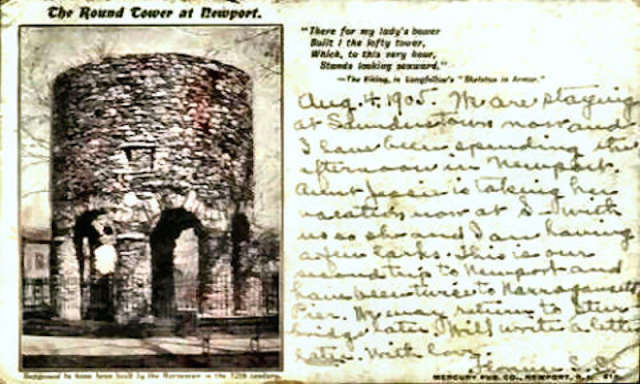 The Round Tower at Newport.
"There for my lady's bower
Built I the lofty tower,
Which, to this very hour,
Stands looking seaward."
—The Viking, in Longfellow's "Skeleton in Armor."
Aug. 4, 1905. We are staying
at Saunderstown now and
I have been spending the
afternoon in Newport.
Aunt Jessie is taking her
vacation now at S– with
us so she and I are having
a few larks. This is our
second trip to Newport and
have been twice to Narragansett
Pier. We may return to Stur-
bridge later. Will write a letter
later. With love,
Supposed to have been built by the Norsemen in the 12th century.
MERCURY PUB. CO., NEWPORT, R. I.